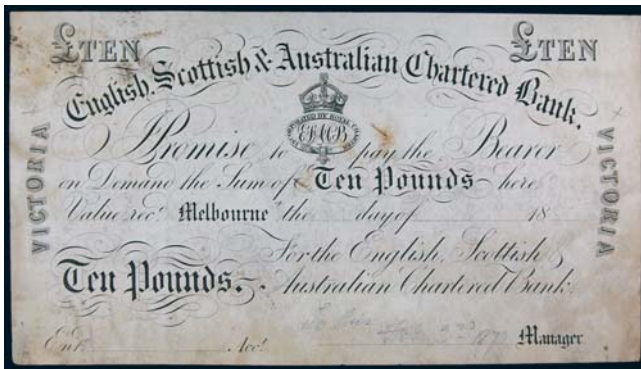 £TEN £TEN
English, Scottish & Australian Chartered Bank.
INCORPORATED BY ROYAL CHARTER
VICTORIA
VICTORIA
Promise to pay the Bearer
on Demand the Sum of Ten Pounds here
Value recd. Melbourne the day of 18
For the English, Scottish &
Ten Pounds. Australian Chartered Bank.
Entd. Acct. Manager